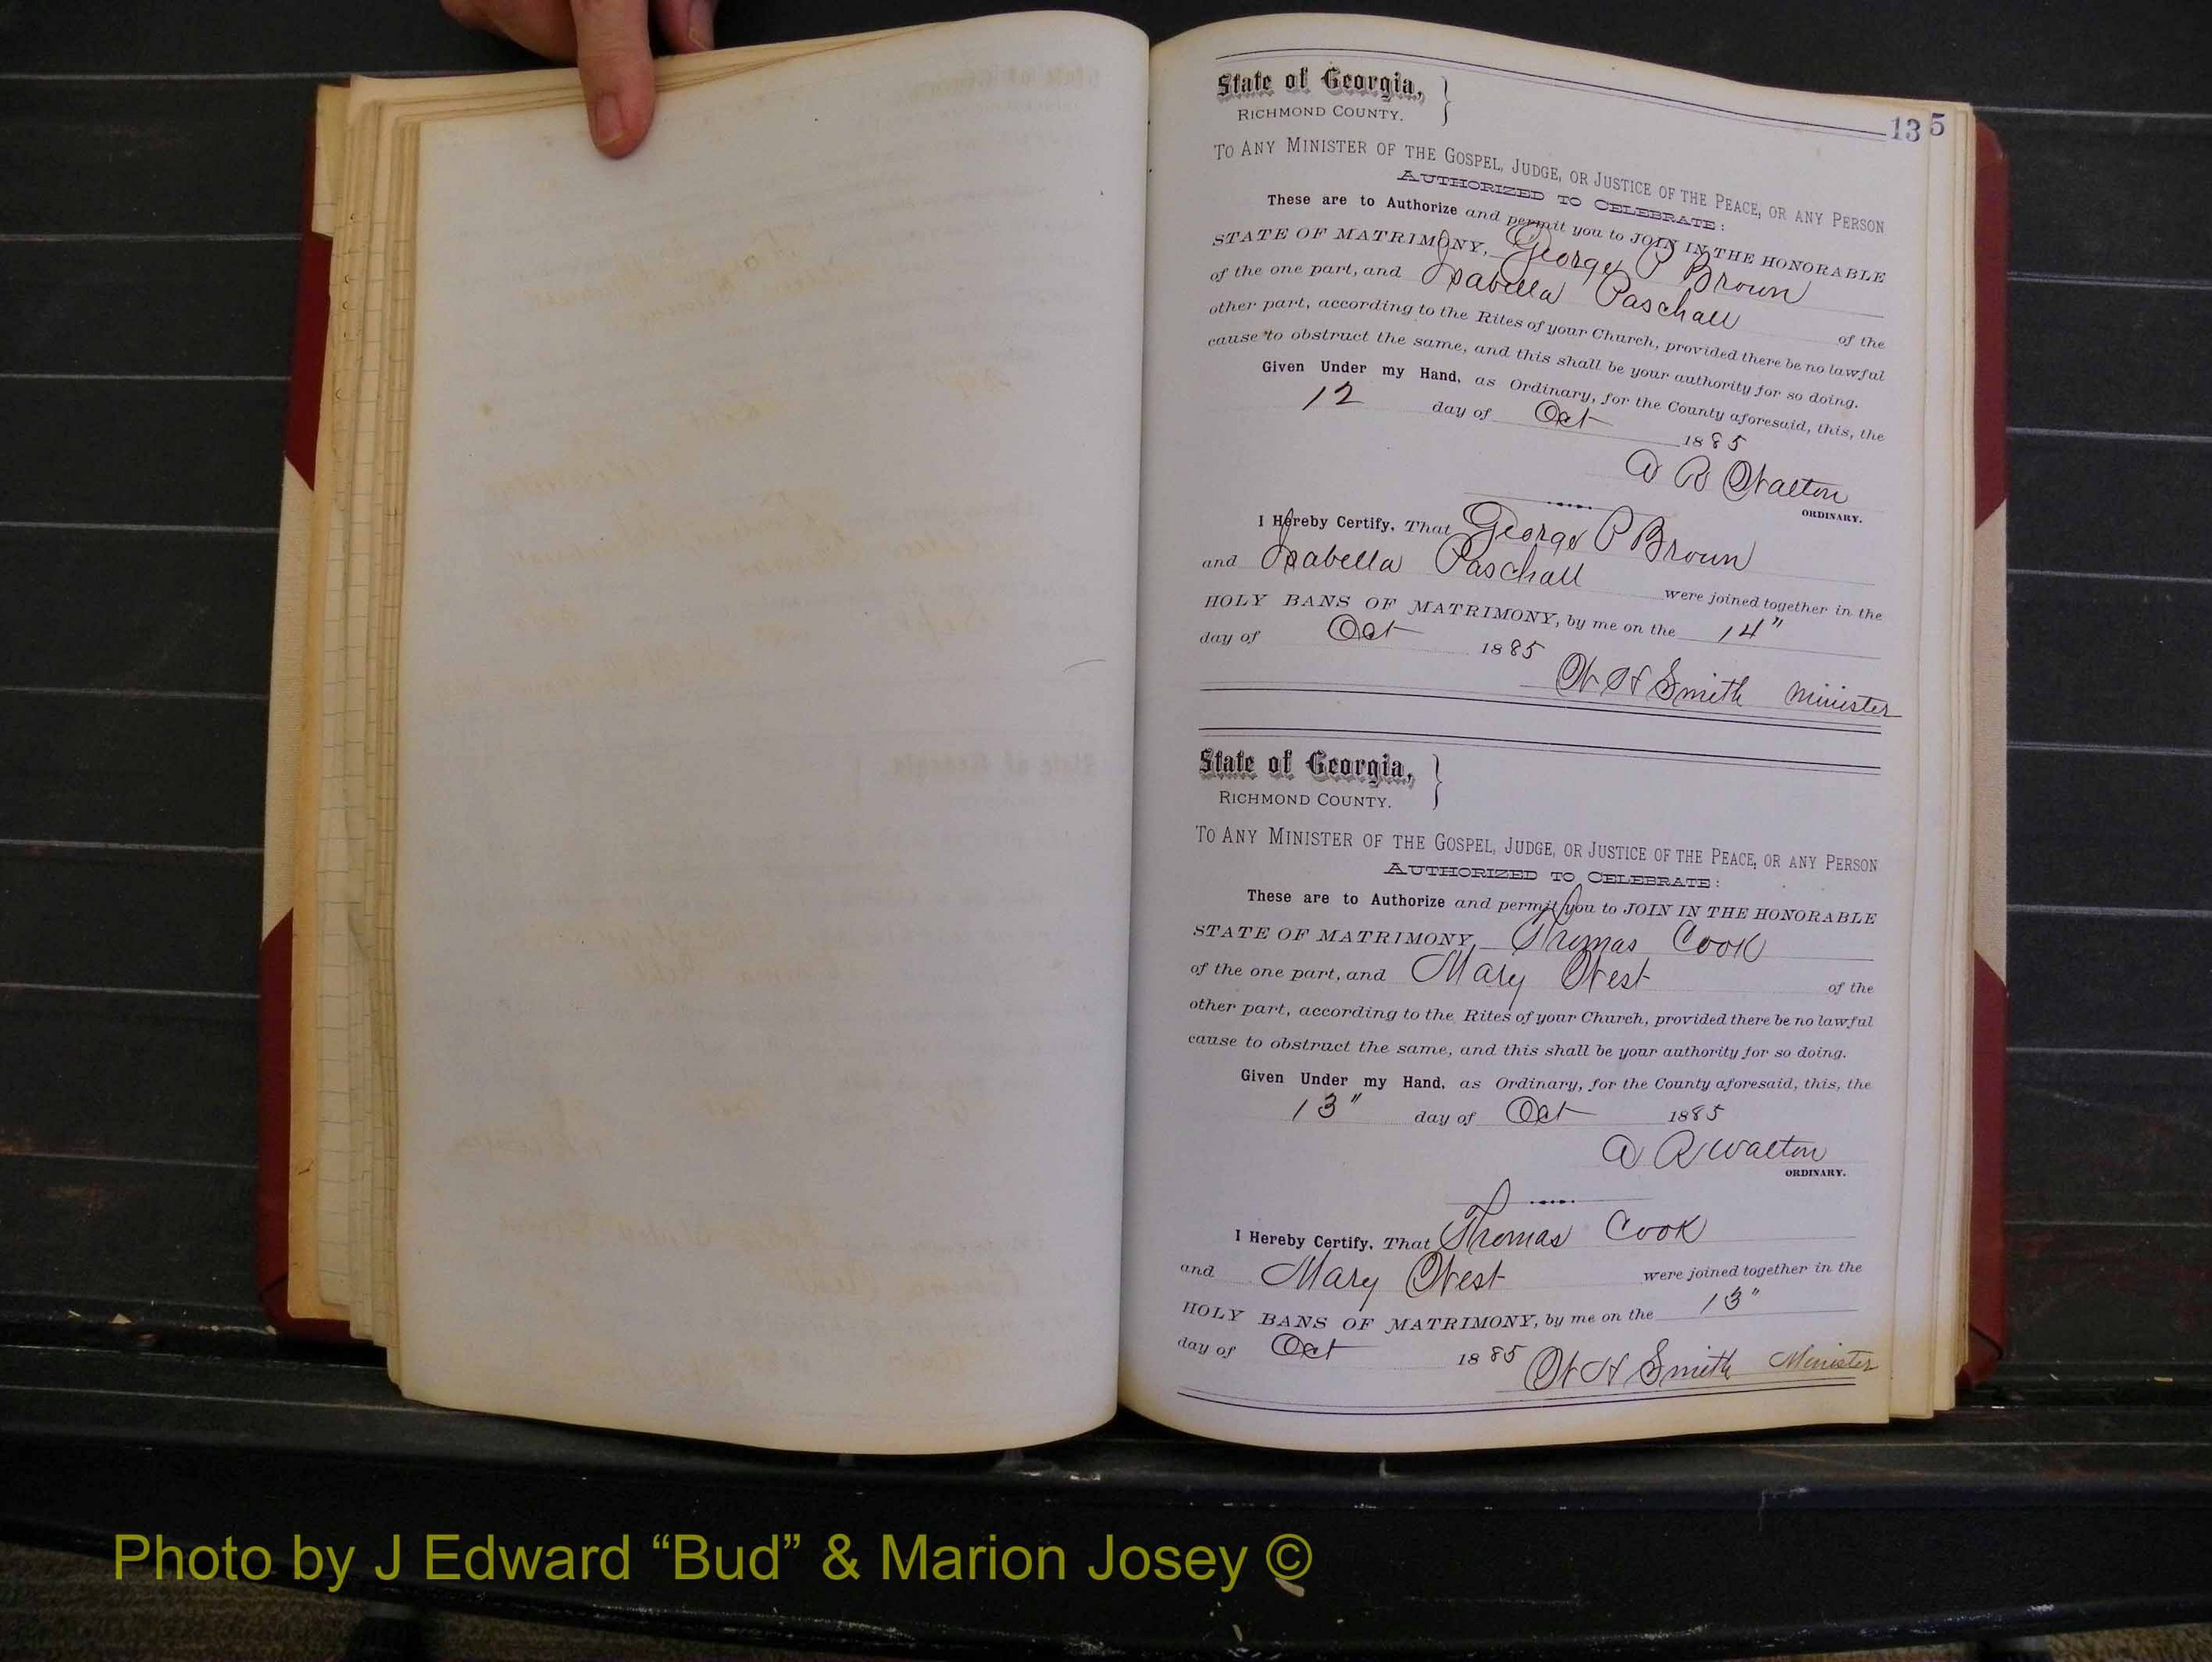 135
State of Georgia,
RICHMOND COUNTY.
TO ANY MINISTER OF THE GOSPEL, JUDGE, OR JUSTICE OF THE PEACE, OR ANY PERSON
AUTHORIZED TO CELEBRATE:
These are to Authorize and permit you to JOIN IN THE HONORABLE
STATE OF MATRIMONY, George P Brown
of the one part, and Isabella Paschall of the
other part, according to the Rites of your Church, provided there be no lawful
cause to obstruct the same, and this shall be your authority for so doing.
Given Under my Hand, as Ordinary, for the County aforesaid, this, the
12 day of Oct 1885
A R Walton
ORDINARY.
I Hereby Certify, That George P Brown
and Isabella Paschall were joined together in the
HOLY BANS OF MATRIMONY, by me on the 14"
day of Oct 1885
W H Smith Minister
State of Georgia,
RICHMOND COUNTY.
TO ANY MINISTER OF THE GOSPEL, JUDGE, OR JUSTICE OF THE PEACE, OR ANY PERSON
AUTHORIZED TO CELEBRATE:
These are to Authorize and permit you to JOIN IN THE HONORABLE
STATE OF MATRIMONY, Thomas Cook
of the one part, and Mary West of the
other part, according to the Rites of your Church, provided there be no lawful
cause to obstruct the same, and this shall be your authority for so doing.
Given Under my Hand, as Ordinary, for the County aforesaid, this, the
13" day of Oct 1885
A R Walton
ORDINARY.
I Hereby Certify, That Thomas Cook
and Mary West were joined together in the
HOLY BANS OF MATRIMONY, by me on the 13"
day of Oct 1885
W H Smith Minister
Photo by J Edward “Bud” & Marion Josey ©